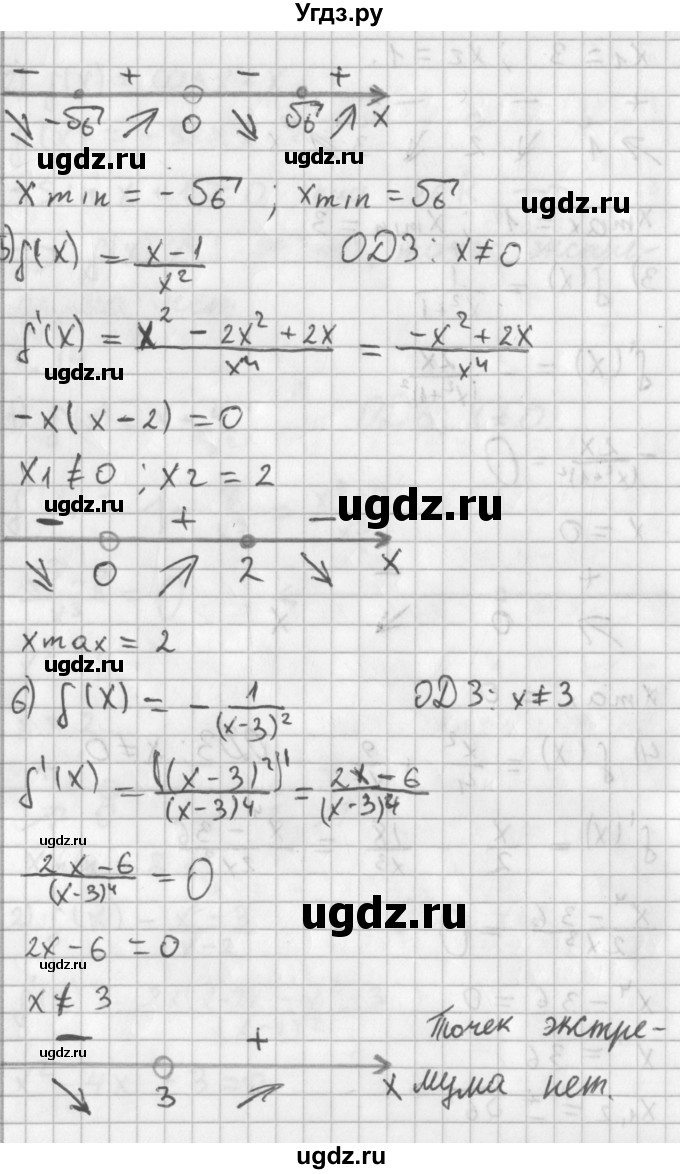 Угдз.ру
− + − +
↘ −√6 ↗ 0 ↘ √6 ↗ x
ugdz.ru ugdz.ru
x min = −√6 ; x min = √6
ugdz.ru
5) f(x) = (x−1)/x² ОДЗ: x≠0
f'(x) = (x² − 2x² + 2x)/x⁴ = (−x² + 2x)/x⁴
ugdz.ru
−x(x−2) = 0
x1 ≠ 0 ; x2 = 2
ugdz.ru ugdz.ru
− + −
↘ 0 ↗ 2 ↘ x
x max = 2
ugdz.ru
6) f(x) = − 1/(x−3)² ОДЗ: x≠3
f'(x) = ((x−3)²)'/(x−3)⁴ = (2x−6)/(x−3)⁴
ugdz.ru
(2x−6)/(x−3)⁴ = 0
ugdz.ru
2x−6 = 0
ugdz.ru
x ≠ 3
− +
ugdz.ru
Точек экстре-
↘ 3 ↗ x
мума нет.
ugdz.ru